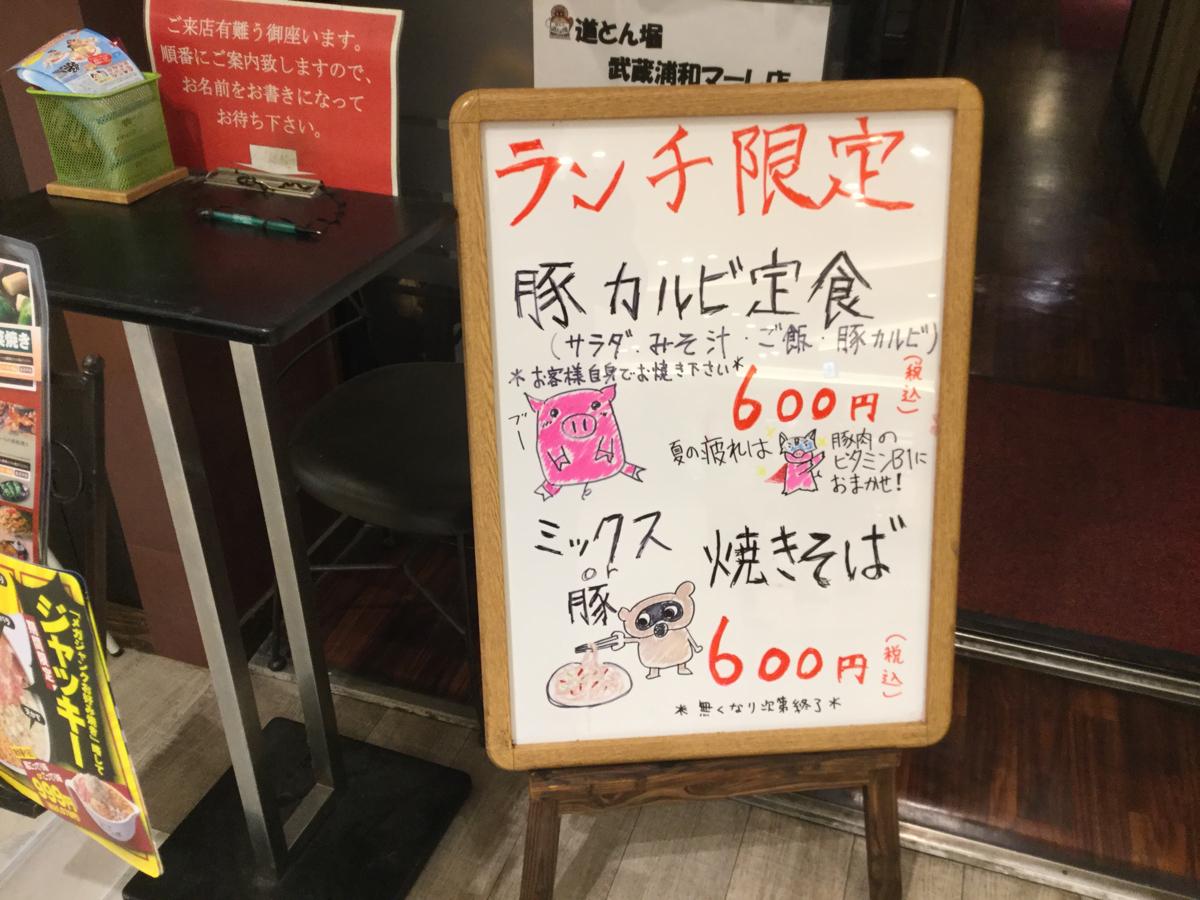 ご来店有難う御座います。
順番にご案内致しますので、
お名前をお書きになって
お待ち下さい。
道とん堀
武蔵浦和マーレ店
ランチ限定
豚カルビ定食
(サラダ・みそ汁・ご飯・豚カルビ)
*お客様自身でお焼き下さい*
600円
(税込)
ブー
夏の疲れは
豚肉の
ビタミンB1に
おまかせ!
ミックス
or
豚
焼きそば
600円
(税込)
*無くなり次第終了*
焼き
ジャッキー
999円